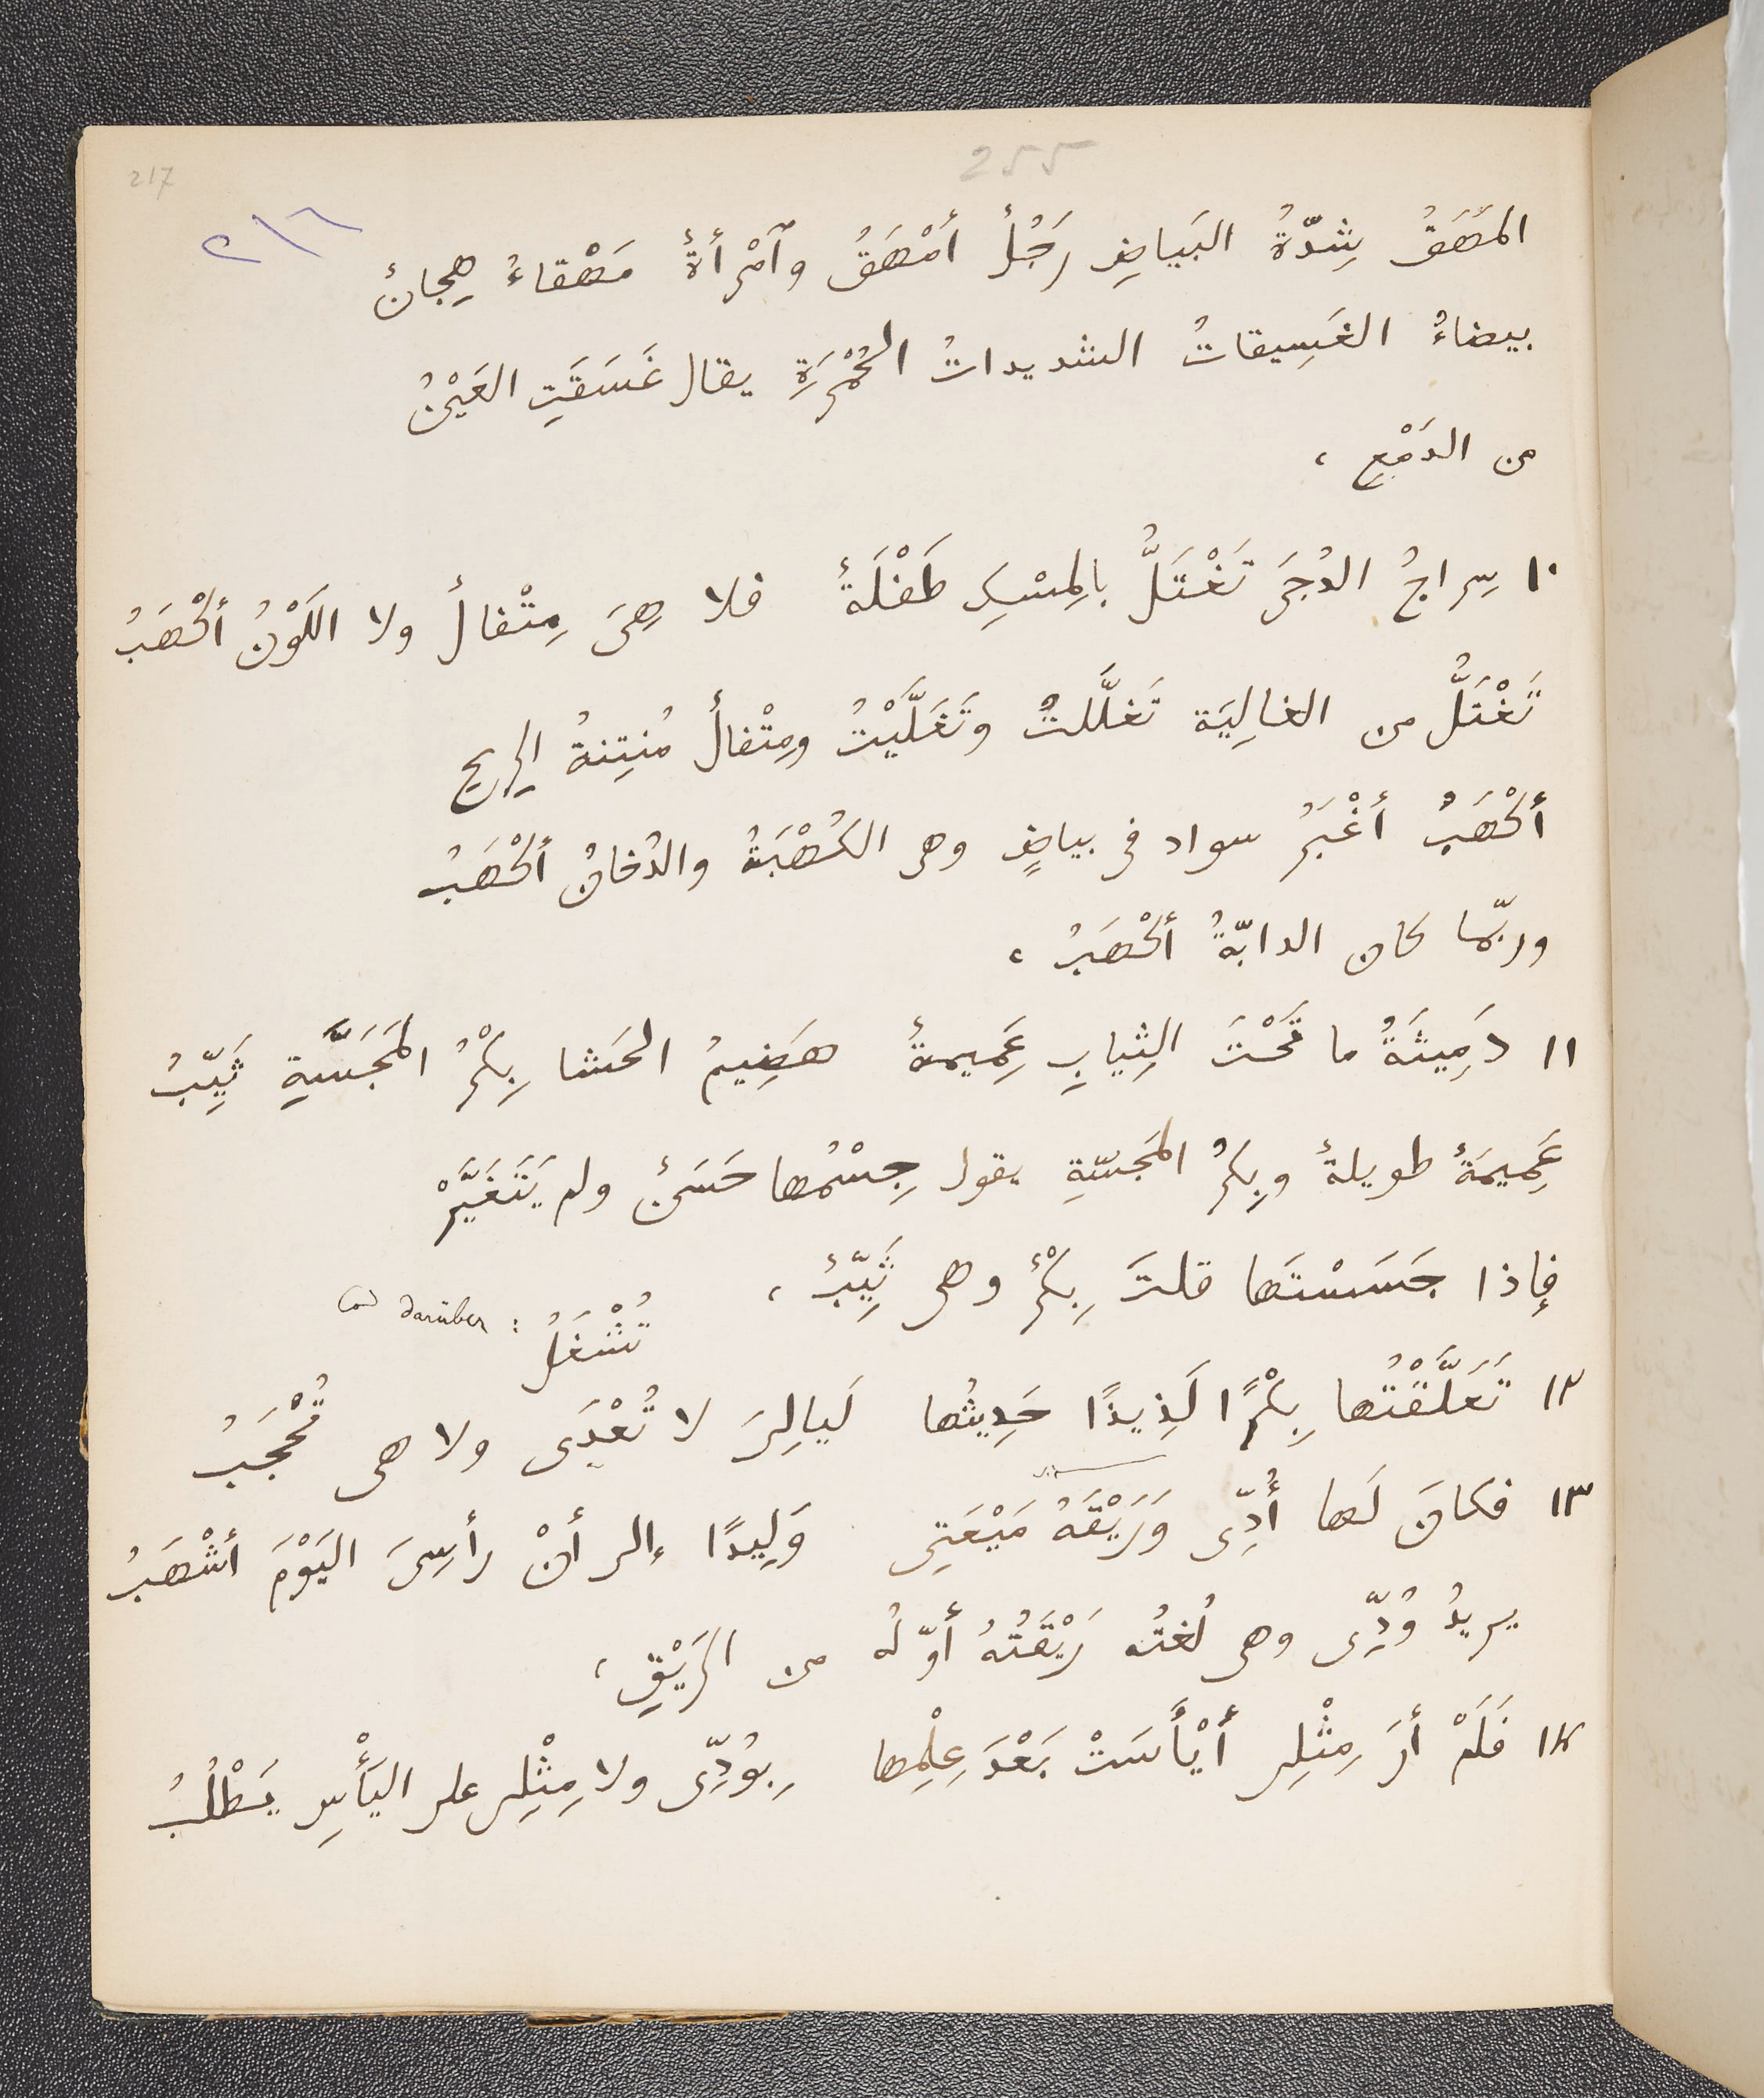 255
217
٢١٦
المَهَقُ شِدّةُ البَياضِ رَجُلٌ أَمْهَقُ وٱمْرأةٌ مَهْقاءُ هِجانٌ
بيضاءُ الغَسِيقاتُ الشديداتُ الحُمْرَةِ يقال غَسَقَتِ العَيْنُ
من الدَمْعِ ،
١٠ سِراجُ الدُجَى تَغْتَلُّ بالمِسْكِ طَفْلَةٌ فلا هِىَ مِتْفالٌ ولا اللَوْنُ أَكْهَبُ
تَغْتَلُّ من الغالِيَة تَغَلَّلتُ وتَغَلَّيْتُ ومِتْفالٌ مُنتِنةُ الرِيحِ
أَكْهَبُ أَغْبَرُ سواد فى بياضٍ وهى الكُهْبَةُ والدُخانُ أَكْهَبُ
وربّما كان الدابّةُ أَكْهَبُ ،
١١ دَمِيثَةُ ما تَحْتَ الثِيابِ عَمِيمةٌ هَضِيمُ الحَشا بِكْرُ المَجَسَّةِ ثَيِّبُ
عَمِيمَةٌ طويلةٌ وبِكرُ المَجَسّةِ يقول جِسْمُها حَسَنٌ ولم يَتَغَيَّرْ
فإذا جَسَسْتَها قلتَ بِكْرٌ وهى ثَيِّبٌ ،
Cod darüber : تُشْغَلُ
١٢ تَعَلَّقْتُها بِكْرًا لَذِيذًا حَدِيثُها لَيالِىَ لا تُعْدَى ولا هى تُحْجَبُ
١٣ فكانَ لَها أُدِّى وَرَيْقَةُ مَيْعَتِى وَلِيدًا إلى أنْ رأسِىَ اليَوْمَ أَشْهَبُ
يريدُ وُدِّى وهى لُغتُه رَيْقَتُهُ أوّلُه من الرَيْقِ ،
١٤ فَلَمْ أرَ مِثْلِى أَيْأَسَتْ بَعْدَ عِلْمِها بِوُدِّى ولا مِثْلِى على اليَأْسِ يَطْلُبُ